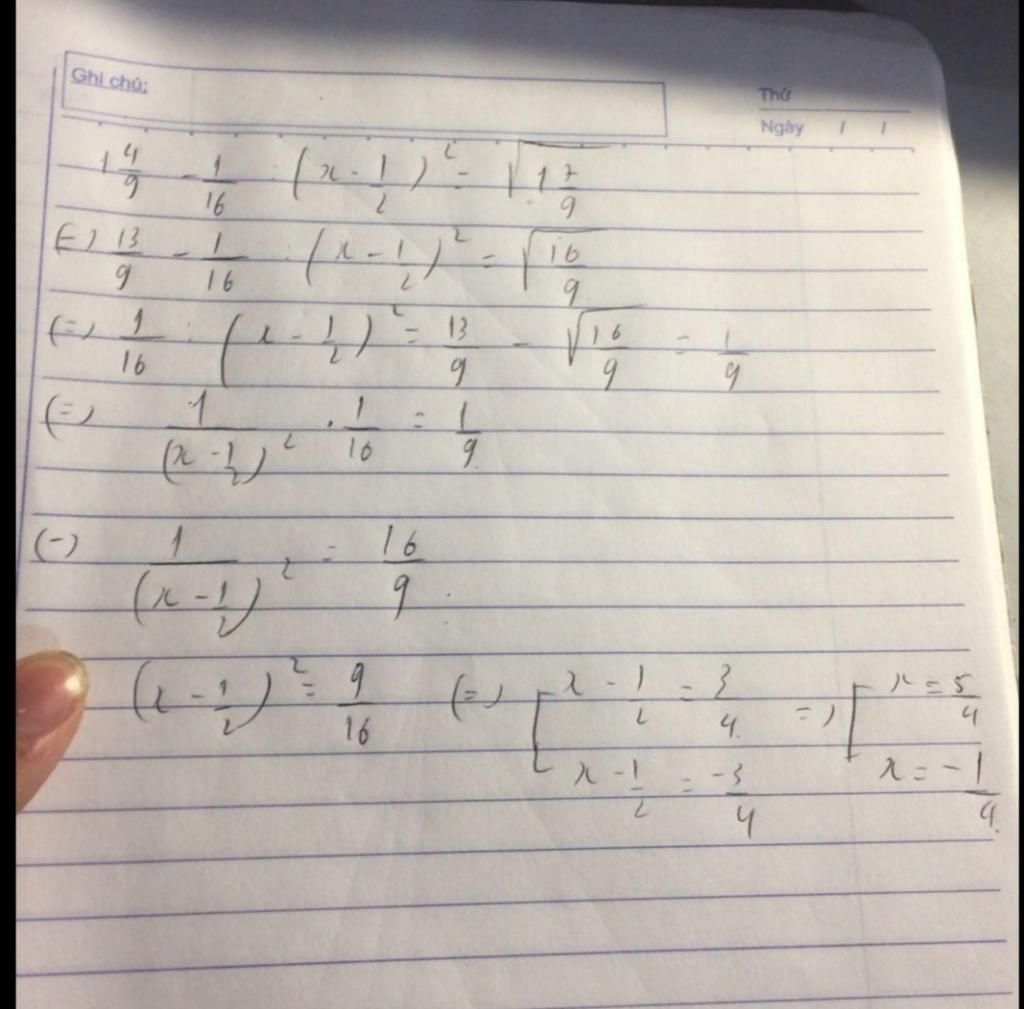 Ghi chú:
Thứ
Ngày / /
1 4/9 - 1/16 : (x - 1/2)² = √(1 7/9)
(=) 13/9 - 1/16 : (x - 1/2)² = √(16/9)
(=) 1/16 : (x - 1/2)² = 13/9 - √(16/9) = 1/9
(=) 1/(x - 1/2)² . 1/16 = 1/9
(=) 1/(x - 1/2)² = 16/9
(x - 1/2)² = 9/16 (=) [ x - 1/2 = 3/4 =) [ x = 5/4
x - 1/2 = -3/4 x = -1/4